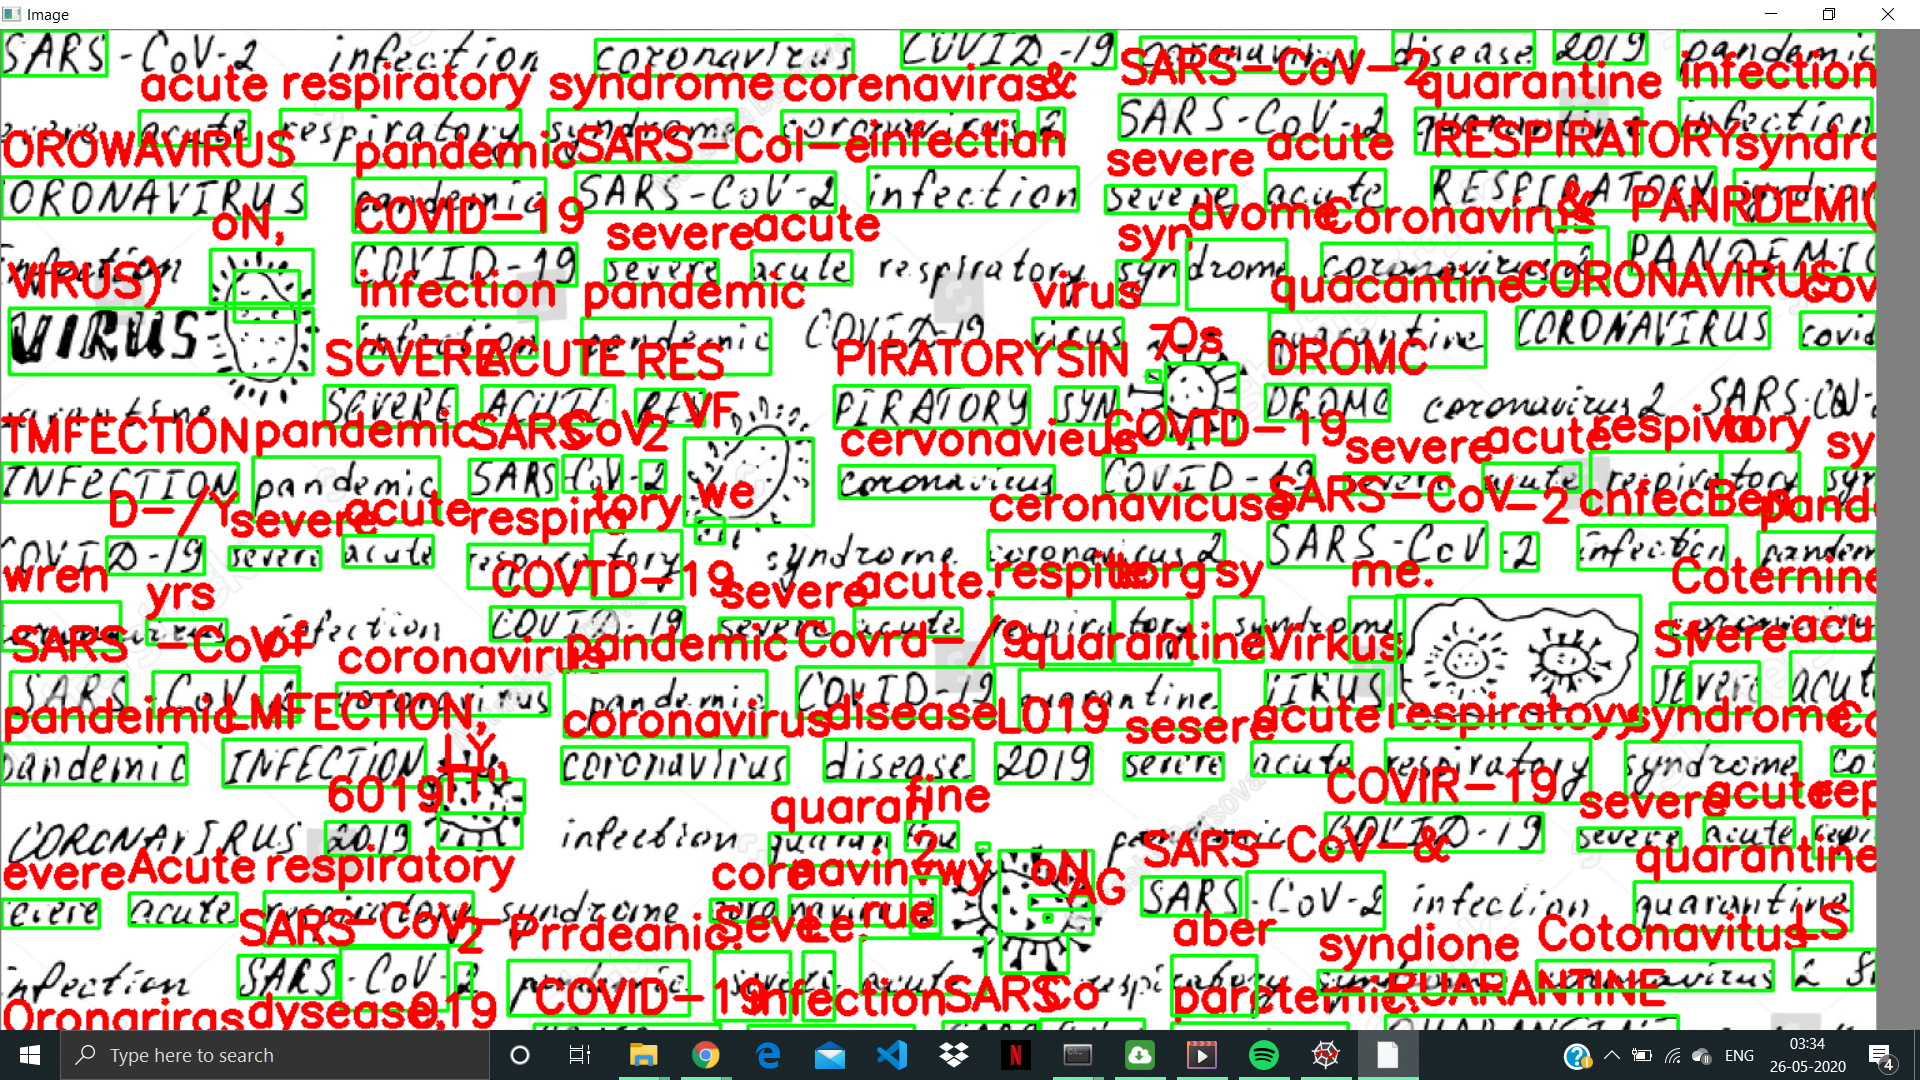 Image
SARS-CoV-2 infection coronavirus COVID-19 coronavirus disease 2019 pandemic
acute respiratory syndrome corenaviras & SARS-CoV-2 quarantine infection
severe acute respiratory syndrome coronavirus 2 SARS-CoV-2 quarantine infection
OROWAVIRUS pandemic SARS-Col-e infectian severe acute RESPIRATORY syndro
CORONAVIRUS pandemic SARS-CoV-2 infection severe acute RESPIRATORY syndro
oN, COVID-19 severe acute syn dvome Coronavirus & PANRDEMI(
infection COVID-19 severe acute respiratory syndrome coronavirus 2 PANDEMIC
VIRUS) infection pandemic virus quacantine CORONAVIRUS cov
VIRUS infection pandemic COVID-19 virus quarantine CORONAVIRUS covid
SCVERE ACUTE RES PIRATORY SIN 7 Os DROMC
quarantine SEVERE ACUTE RES PIRATORY SYN DROME coronavirus 2 SARS-CoV-2
TMFECTION pandemic SARS CoV 2 VF cervonavieus COVTD-19 severe acute respiva tory sy
INFECTION pandemic SARS-CoV-2 coronavirus COVID-19 severe acute respiratory syn
D-/Y severe acute respira tory we ceronavicuse SARS-CoV-2 cnfec Ben pand
COVID-19 severe acute respiratory syndrome coronavirus 2 SARS-CoV-2 infection pandem
wren yrs COVTD-19 severe acute. respite torg sy me. Coternine
coronavirus infection COVID-19 severe acute respiratory syndrome coronavirus
SARS -CoV of coronavirus pandemic Covrd-/9 quarantine Virkus S ivere acu
SARS-CoV-2 coronavirus pandemic COVID-19 quarantine VIRUS SEVERE acut
pandeimid LMFECTION, coronavirus disease L019 sesere acute respiratoyy syndrome Co
pandemic INFECTION coronavirus disease 2019 severe acute respiratory syndrome co
6019 LY IT, quaran fine COVIR-19 severe acute rep
CORONAVIRUS 2019 infection quarantine pandemic COVID-19 severe acute
evere Acute respiratory core navin 2 wy oN AG SARS-CoV-& quarantine
severe acute respiratory syndrome coronavirus 2 SARS-CoV-2 infection quarantine
SARS-CoV-2 Prrdeanic. seve Le. rue aber syndione Cotonavitus LS
infection SARS-CoV-2 pandemic severe acute respiratory syndrome coronavirus 2
Oronariras dysease, 019 COVID-19 infection SARS Co parutemic. RUARANTINE
QUARANTINE
Type here to search
ENG
03:34
26-05-2020
4